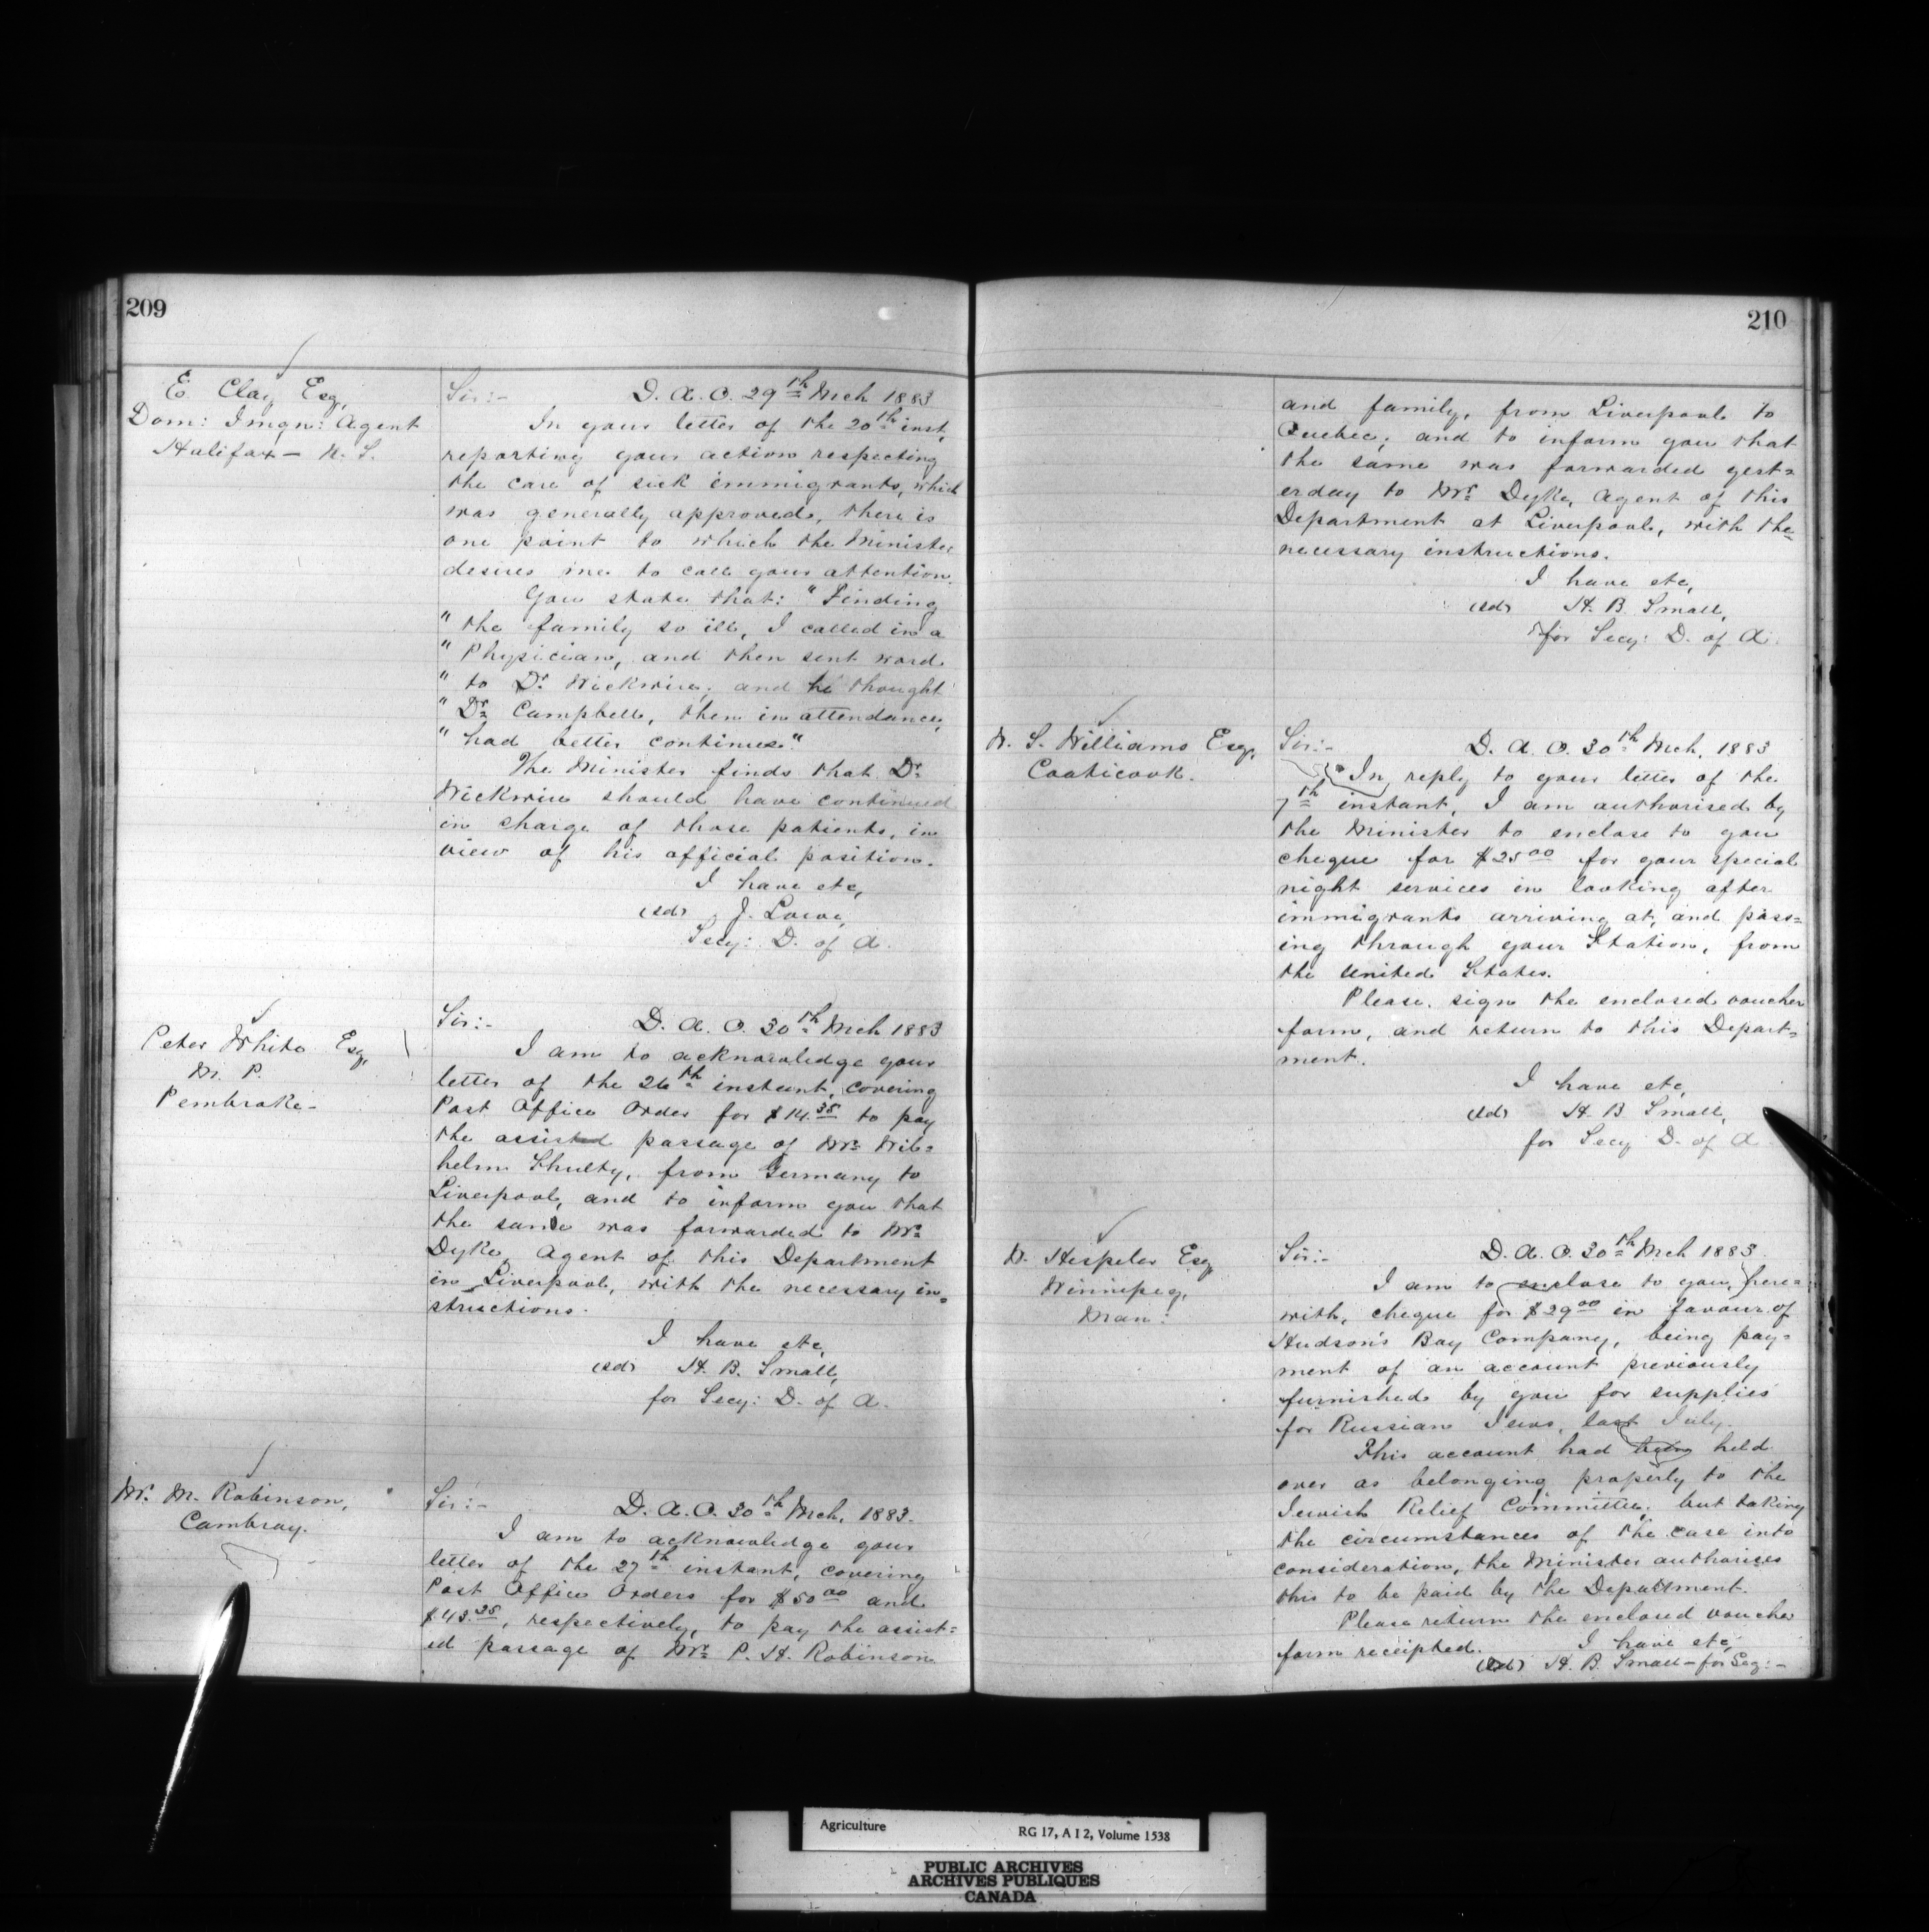 209
E Clay Esq,
Dom: Imgn: Agent
Halifax - N. S.
Sir:- D. A. O. 29th Mch 1883
In your letter of the 20th inst,
reporting your action respecting
the care of sick immigrants, which
was generally approved, there is
one point to which the Minister
desires me to call your attention.
You state that: "Finding
" the family so ill, I called in a
" Physician, and then sent word
" to Dr. Wickwire; and he thought
" Dr. Campbell, then in attendance,
" had better continue."
The Minister finds that Dr.
Wickwire should have continued
in charge of those patients, in
view of his official position.
I have etc,
(sd) J. Lowe,
Secy: D. of A.
Peter White Esq,
M. P.
Pembroke-
Sir:- D. A. O. 30th Mch 1883
I am to acknowledge your
letter of the 26th instant, covering
Post Office Order for $14.35 to pay
the assisted passage of Mr. Wil=
helm Shulty, from Germany to
Liverpool, and to inform you that
the same was forwarded to Mr.
Dyke, Agent of this Department
in Liverpool, with the necessary in=
structions.
I have etc,
(sd) H. B. Small,
for Secy: D. of A.
Mr. M. Robinson,
Cambray.
Sir:- D. A. O. 30th Mch, 1883.
I am to acknowledge your
letter of the 27th instant, covering
Post Office Orders for $50.00 and
$43.35, respectively, to pay the assist=
ed passage of Mr. P. H. Robinson
210
and family, from Liverpool to
Quebec; and to inform you that
the same was forwarded yest=
erday to Mr. Dyke, Agent of this
Department at Liverpool, with the
necessary instructions.
I have etc,
(sd) H. B. Small,
for Secy: D. of A.
W. S. Williams Esq,
Coaticook.
Sir:- D. A. O. 30th Mch, 1883
In reply to your letter of the
7th instant, I am authorised by
the Minister to enclose to you
cheque for $25.00 for your special
night services in looking after
immigrants arriving at, and pass=
ing through your Station, from
the United States.
Please sign the enclosed voucher
form, and return to this Depart=
ment.
I have etc,
(sd) H. B. Small,
for Secy D. of A.
W. Hespeler Esq,
Winnipeg,
Man:
Sir:- D. A. O. 30th Mch 1883.
I am to enclose to you, here=
with, cheque for $29.00 in favour of
Hudson's Bay Company, being pay=
ment of an account previously
furnished by you for supplies
for Russian Jews, last July.
This account had been held
over as belonging properly to the
Jewish Relief Committee; but taking
the circumstances of the case into
consideration, the Minister authorises
this to be paid by the Department.
Please return the enclosed voucher
form receipted.
I have etc,
(sd) H. B. Small - for Secy:-
Agriculture RG 17, A I 2, Volume 1538
PUBLIC ARCHIVES
ARCHIVES PUBLIQUES
CANADA